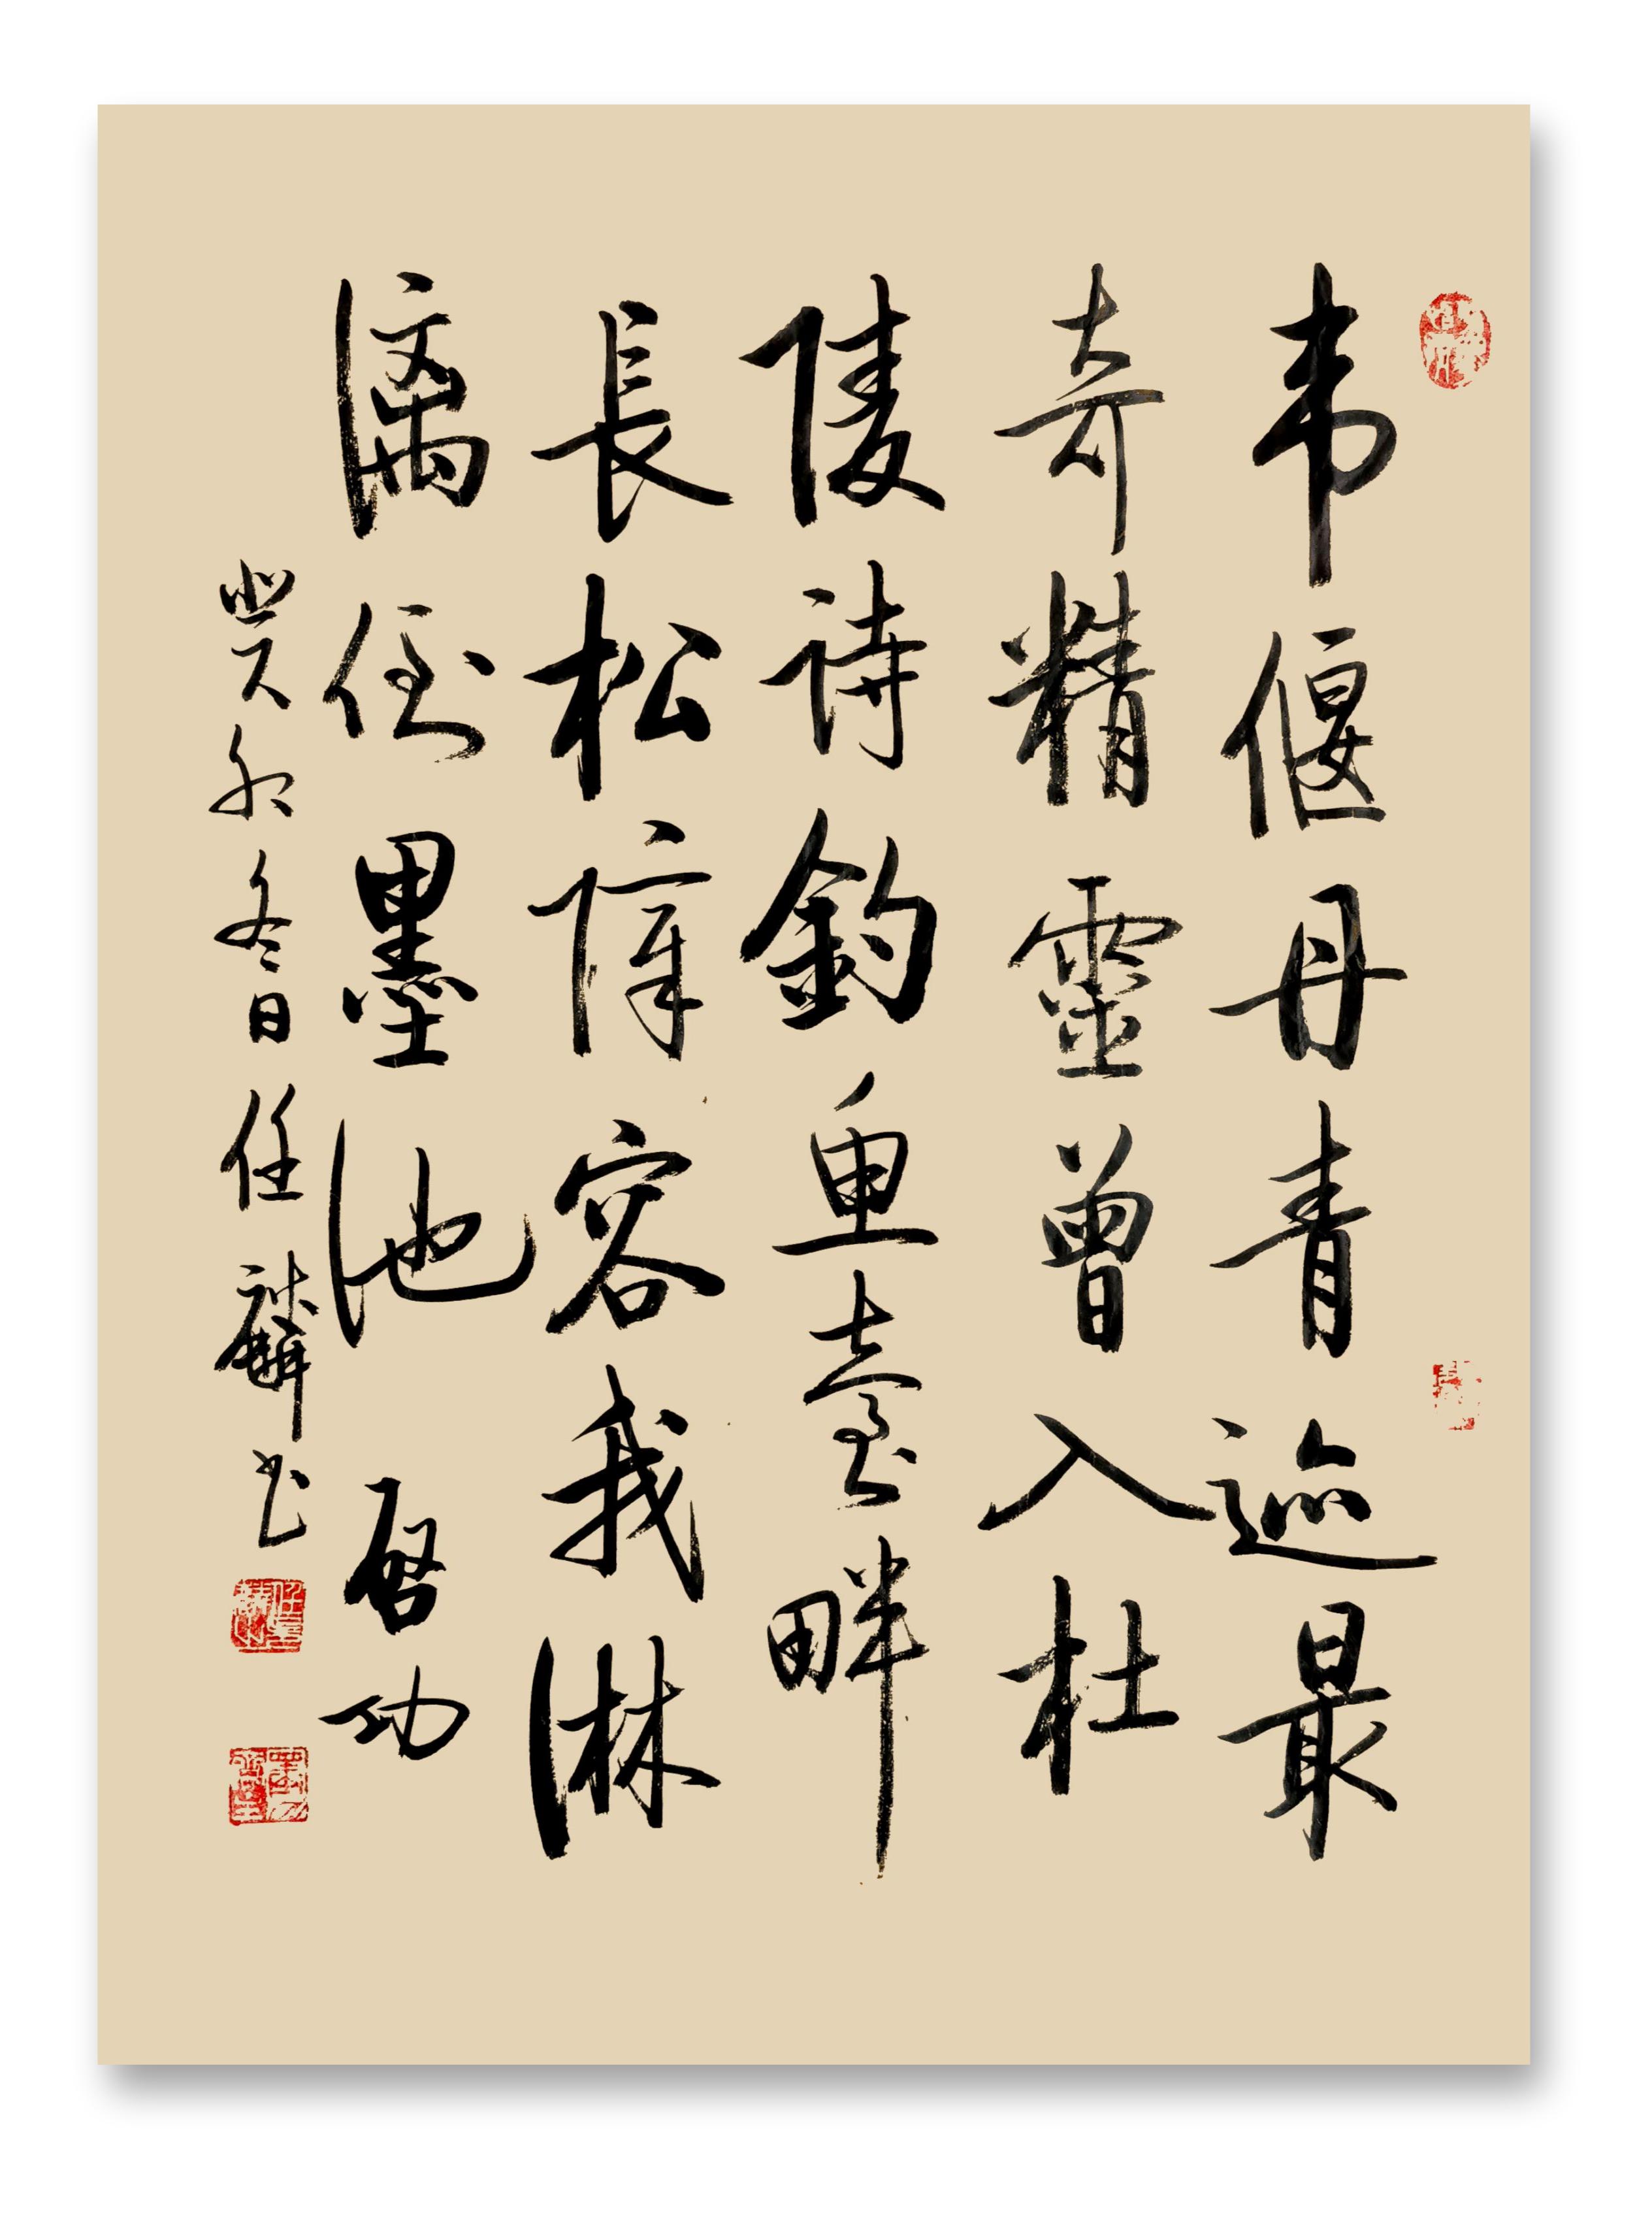 韦偃丹青迹最
奇精靈曾入杜
陵诗钓重臺畔
長松障容我淋
漓倒墨池启功
癸卯冬日任麟书